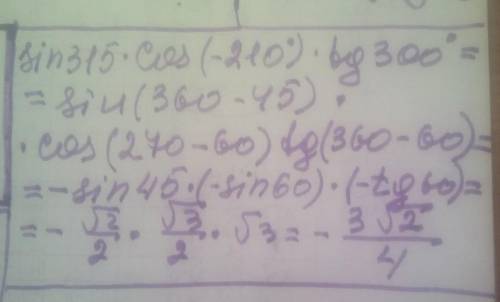 sin315·cos(-210°)·tg300°=
=sin(360-45)·
·cos(270-60)tg(360-60)=
=-sin45·(-sin60)·(-tg60)=
=-√2/2·√3/2·√3=-3√2/4